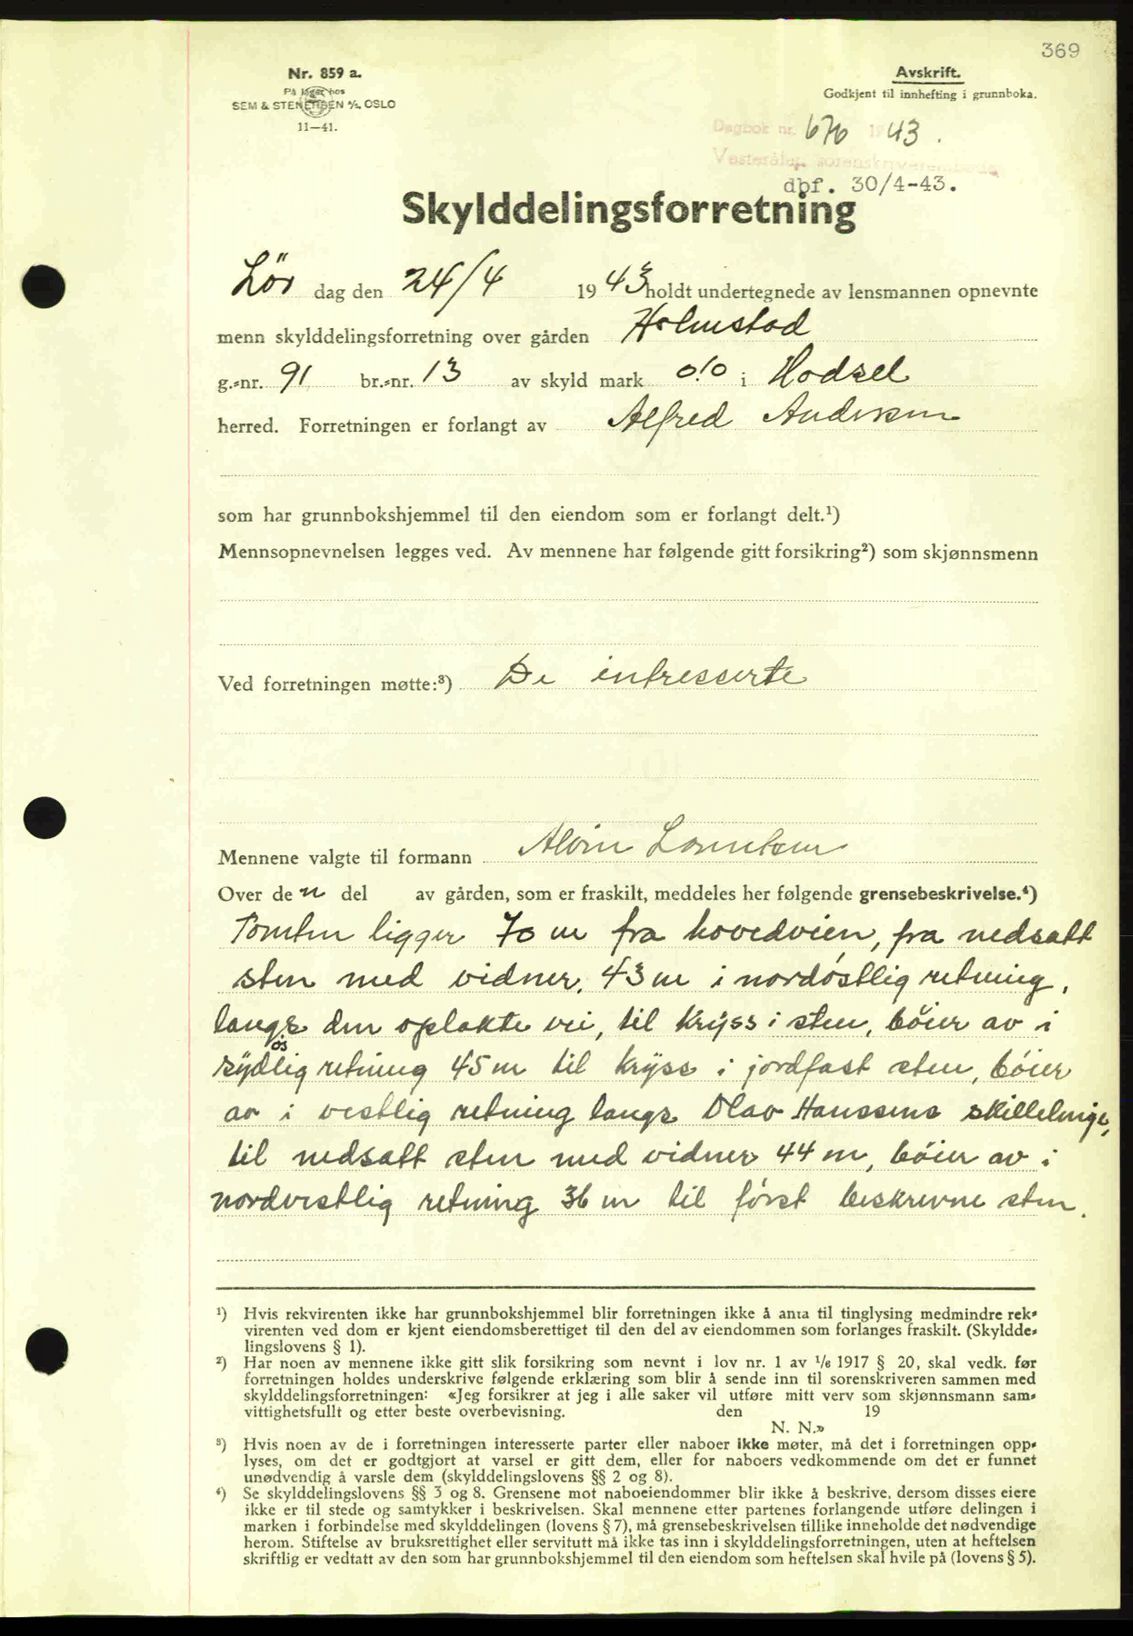 369
Nr. 859 a.
På lager hos
SEM & STENERSEN A/S. OSLO
11—41.
Avskrift.
Godkjent til innhefting i grunnboka.
Dagbok nr. 676 1943.
Vesterålen sorenskriverembede
dbf. 30/4-43.
Skylddelingsforretning
Lör dag den 24/4 1943 holdt undertegnede av lensmannen opnevnte
menn skylddelingsforretning over gården Holmstad
g.-nr. 91 br.-nr. 13 av skyld mark 0.10 i Hadsel
herred. Forretningen er forlangt av Alfred Andersen
som har grunnbokshjemmel til den eiendom som er forlangt delt.¹)
Mennsopnevnelsen legges ved. Av mennene har følgende gitt forsikring²) som skjønnsmenn
Ved forretningen møtte:³) De intresserte
Mennene valgte til formann Alvin
Over den del av gården, som er fraskilt, meddeles her følgende grensebeskrivelse.⁴)
Tomten ligger 70 m fra hovedveien, fra nedsatt
sten med vidner, 43 m i nordöstlig retning,
langs den oplakte vei, til kryss i sten, böier av i
sydöslig retning 45 m til kryss i jordfast sten, böier
av i vestlig retning langs Olav Hanssens skillelinje,
til nedsatt sten med vidner 44 m, böier av i
nordvestlig retning 36 m til först beskrevne sten.
¹) Hvis rekvirenten ikke har grunnbokshjemmel blir forretningen ikke å anta til tinglysing medmindre rek-
virenten ved dom er kjent eiendomsberettiget til den del av eiendommen som forlanges fraskilt. (Skyldde-
lingslovens § 1).
²) Har noen av mennene ikke gitt slik forsikring som nevnt i lov nr. 1 av 1/6 1917 § 20, skal vedk. før
forretningen holdes underskrive følgende erklæring som blir å sende inn til sorenskriveren sammen med
skylddelingsforretningen: «Jeg forsikrer at jeg i alle saker vil utføre mitt verv som skjønnsmann sam-
vittighetsfullt og etter beste overbevisning. den 19
N. N.»
³) Hvis noen av de i forretningen interesserte parter eller naboer ikke møter, må det i forretningen opp-
lyses, om det er godtgjort at varsel er gitt dem, eller for naboers vedkommende om det er funnet
unødvendig å varsle dem (skylddelingslovens §§ 2 og 8).
⁴) Se skylddelingslovens §§ 3 og 8. Grensene mot naboeiendommer blir ikke å beskrive, dersom disses eiere
ikke er til stede og samtykker i beskrivelsen. Skal mennene etter partenes forlangende utføre delingen i
marken i forbindelse med skylddelingen (lovens § 7), må grensebeskrivelsen tillike inneholde det nødvendige
herom. Stiftelse av bruksrettighet eller servitutt må ikke tas inn i skylddelingsforretningen, uten at heftelsen
skriftlig er vedtatt av den som har grunnbokshjemmel til den eiendom som heftelsen skal hvile på (lovens § 5).